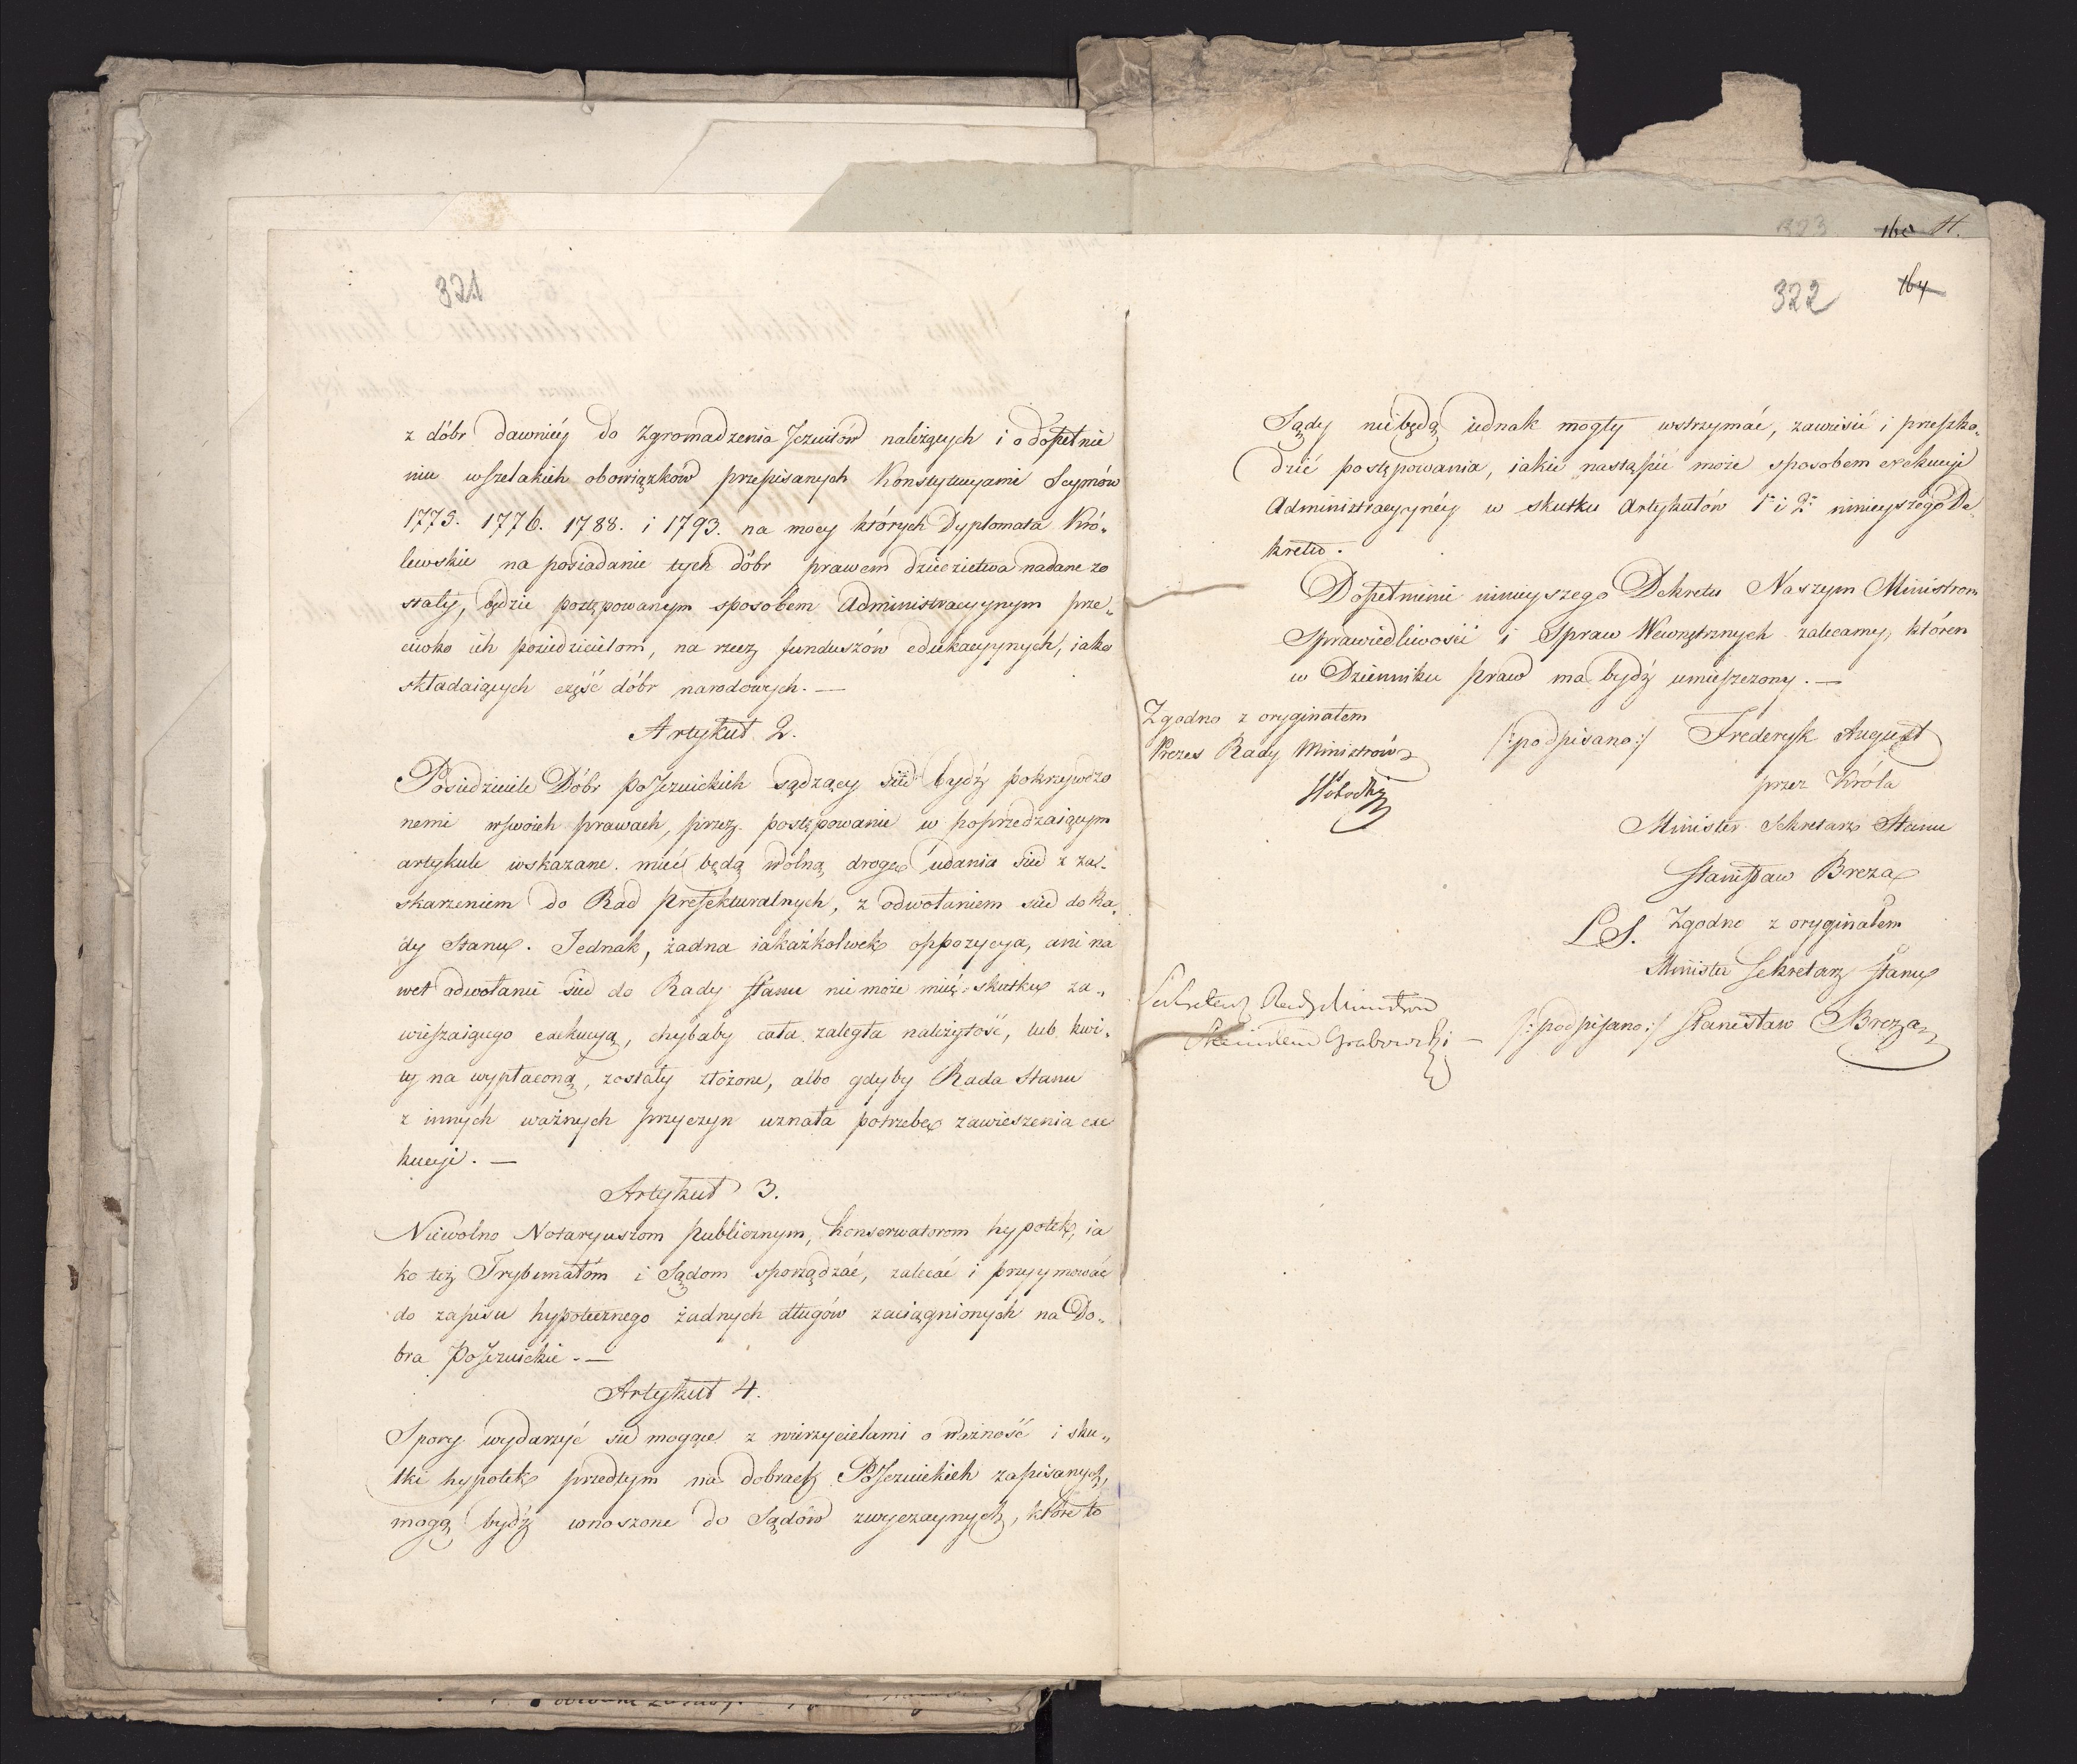 321
z dóbr dawniéy do Zgromadzenia Jezuitów należących i o dopełnie
niu wszelakich obowiązków przepisanych Konstytucyami Seymów
1775. 1776. 1788. i 1793. na mocy których Dyplomata Kró„
lewskie na posiadanie tych dóbr prawem dziedzictwa nadane zo
stały, będzie postępowanym sposobem Administracyynym prze„
ciwko ich posiedzicielom, na rzecz funduszów edukacyynych, iako
składaiących część dóbr narodowych. —
Artykuł 2.
Posiedziciele Dóbr poJezuickich sądzący się bydź pokrzywdzo
nemi w swoich prawach, przez postępowanie w poprzedzaiącym
artykule wskazane. mieć będą wolną drogę udania się z za„
skarżeniem do Rad Prefekturalnych, z odwołaniem się do Ra„
dy Stanu. Jednak, żadna iakażkolwiek oppozycya, ani na
wet odwołanie się do Rady Stanu nie może mieć skutku za„
wieszaiącego exekucyą, chybaby cała zaległa należytość, lub kwi„
ty na wypłaconą, zostały złożone, albo gdyby Rada Stanu
z innych ważnych przyczyn uznała potrzebę zawieszenia exe
kucyi. —
Artykuł 3.
Niewolno Notaryuszom Publicznym, Konserwatorom hypotek, ia
ko też Trybunałom i Sądom sporządzać, zalecać i przyymować
do zapisu hypotecznego żadnych długów zaciągnionych na Do„
bra PoJezuickie. —
Artykuł 4.
Spory wydarzyć się mogące z wierzycielami o ważność i sku„
tki hypotek przedtym na dobrach PoJezuickich zapisanych,
mogą bydź wnoszone do Sądów zwyczaynych, które to
323 160 H.
322 164
Sądy nie będą iednak mogły wstrzymać, zawiesić i przeszko„
dzić postępowania, iakie nastąpić może sposobem exekucyi
Administracyynéy w skutku Artykułów 1° i 2° ninieyszego De„
kretu.
Dopełnienie ninieyszego Dekretu Naszym Ministrom
Sprawiedliwości i Spraw Wewnętrznych zalecamy, któren
w Dzienniku praw ma bydź umieszczony. —
/:podpisano:/ Fryderyk August
przez Króla
Minister Sekretarz Stanu
Stanisław Breza
L. S. Zgodno z oryginałem
Minister Sekretarz Stanu
/:podpisano:/ Stanisław Breza
Zgodno z oryginałem
Prezes Rady Ministrów
Sekretarz Rady Ministrów
Grabowski